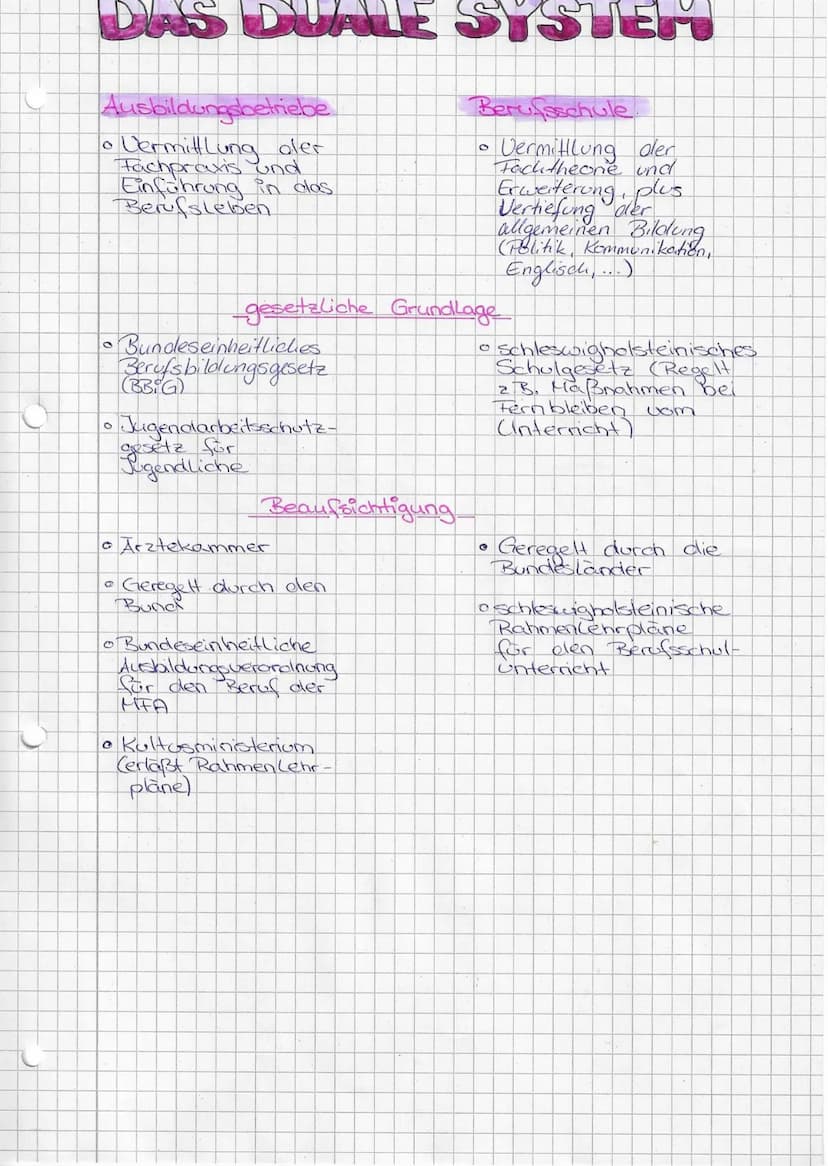 DAS DUALE SYSTEM
Ausbildungsbetriebe
• Vermittlung der
Fachpraxis und
Einführung in das
Berufsleben
Berufsschule
• Vermittlung der
Fachtheorie und
Erweiterung, plus
Vertiefung der
allgemeinen Bildung
(Politik, Kommunikation,
Englisch, ...)
gesetzliche Grundlage
• Bundeseinheitliches
Berufsbildungsgesetz
(BBiG)
• Jugendarbeitsschutz-
gesetz für
Jugendliche
• schleswigholsteinisches
Schulgesetz (Regelt
z.B. Maßnahmen bei
Fernbleiben vom
Unterricht)
Beaufsichtigung
• Ärztekammer
• Geregelt durch den
Bund
• Bundeseinheitliche
Ausbildungsverordnung
für den Beruf der
MFA
• Kultusministerium
(erläßt Rahmenlehr-
pläne)
• Geregelt durch die
Bundesländer
• schleswigholsteinische
Rahmenlehrpläne
für den Berufsschul-
unterricht